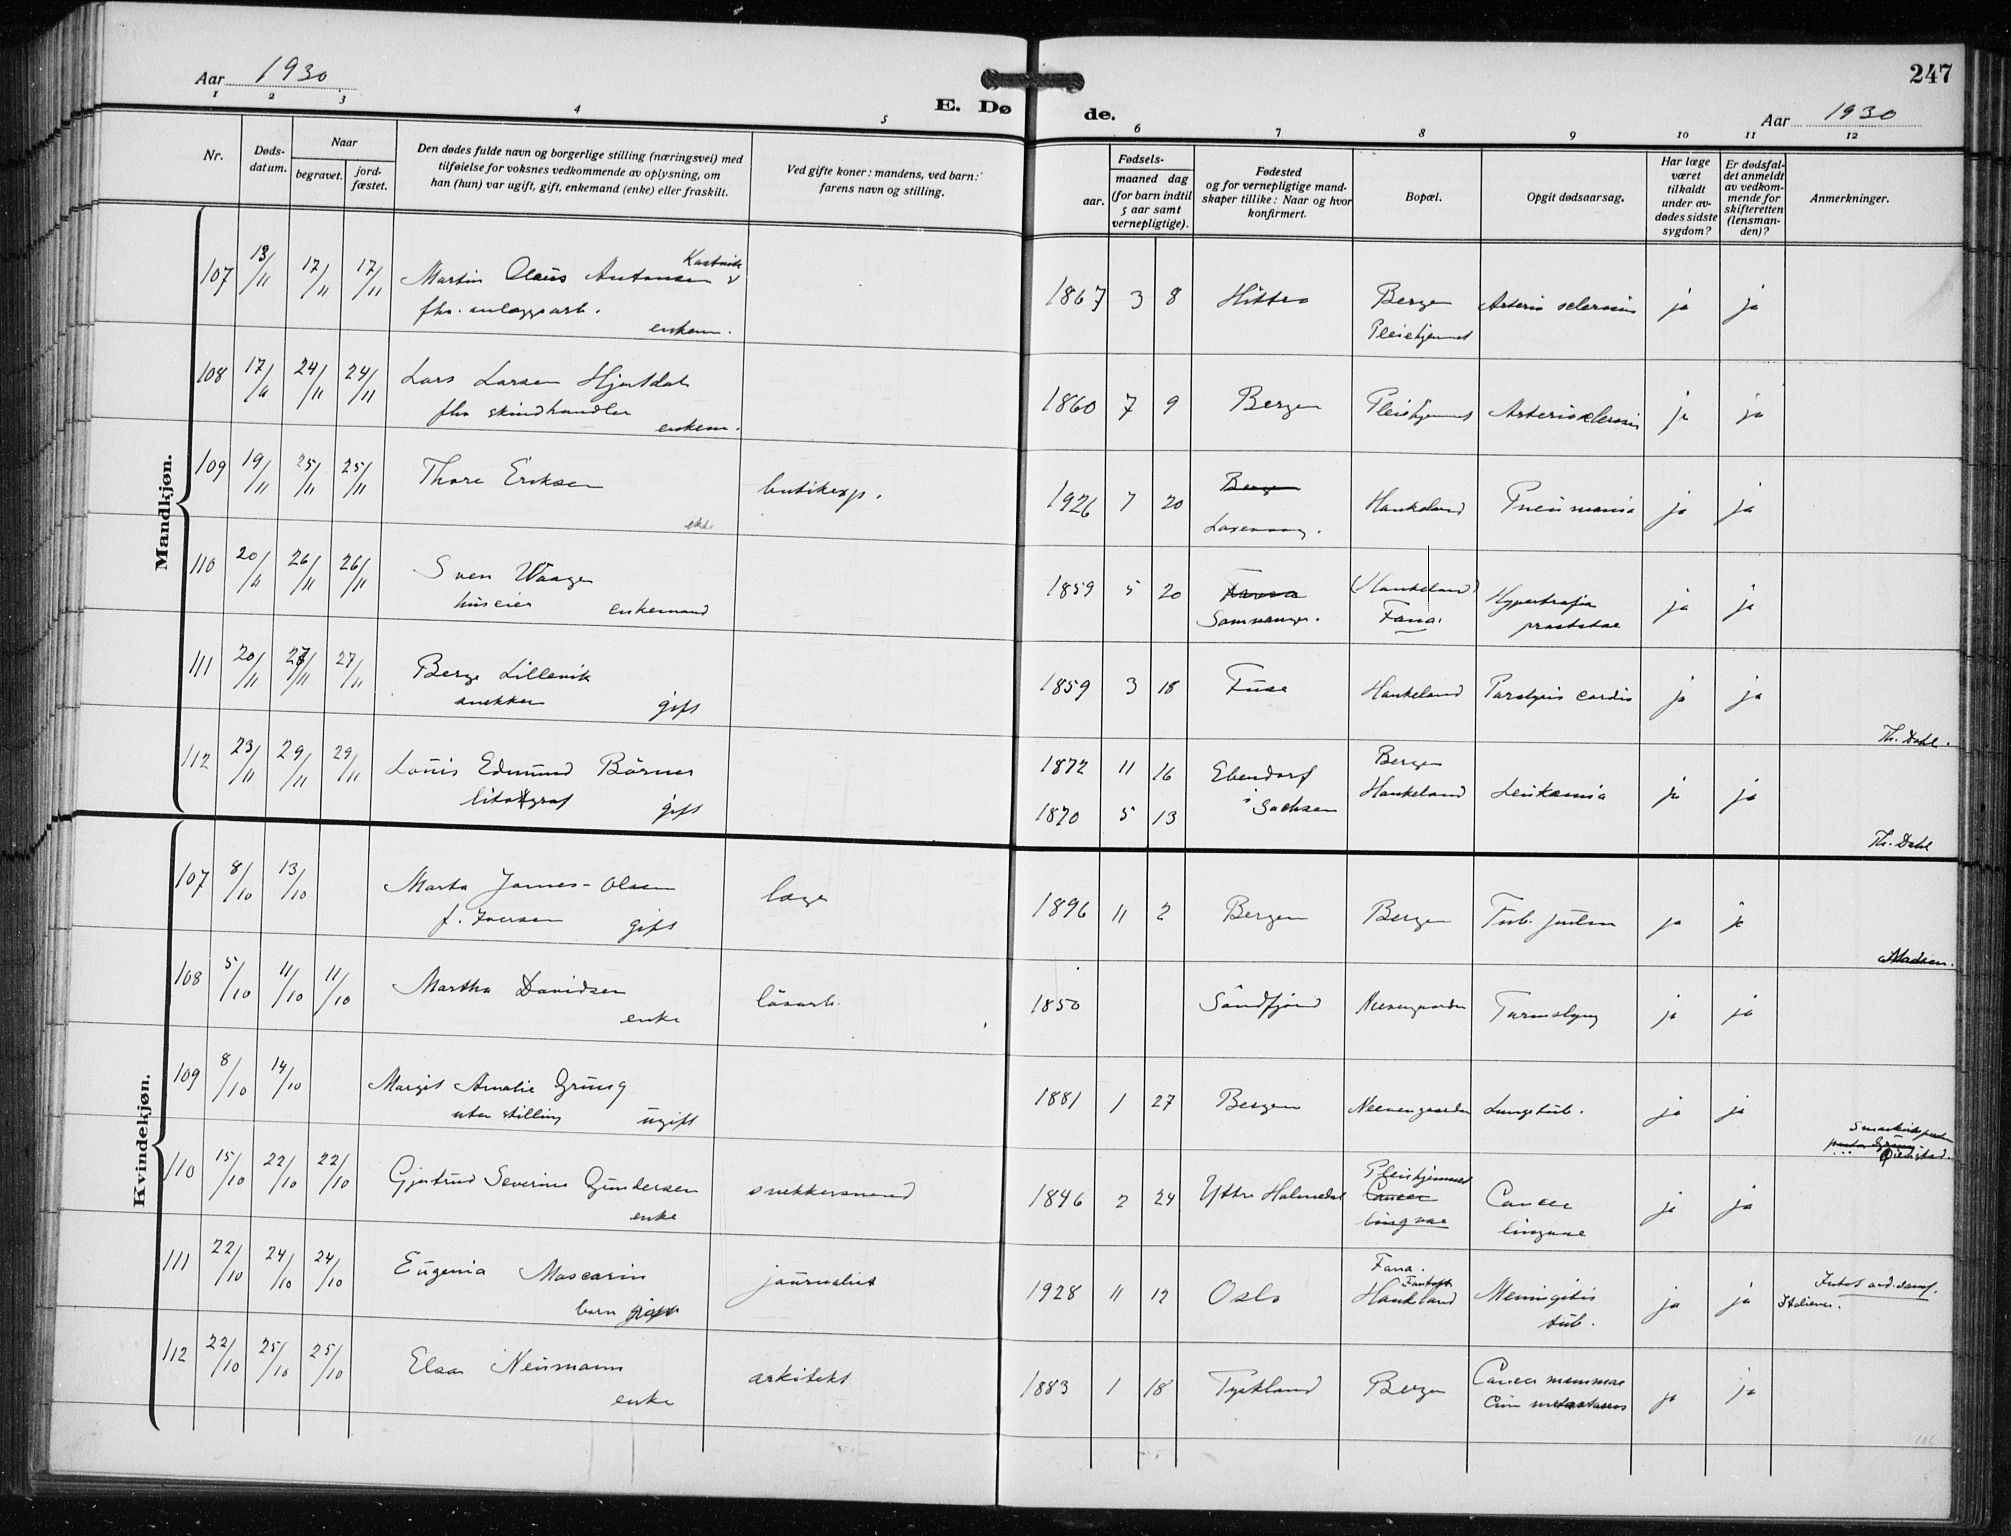 Aar 1930
E. Dø de.
247
Aar 1930
1 2 3 4 5 6 7 8 9 10 11 12
Nr.
Døds-datum.
Naar
begravet.
jord-fæstet.
Den dødes fulde navn og borgerlige stilling (næringsvei) med
tilføielse for voksnes vedkommende av oplysning, om
han (hun) var ugift, gift, enkemand (enke) eller fraskilt.
Ved gifte koner: mandens, ved barn:
farens navn og stilling.
Fødsels-
aar.
maaned dag
(for barn indtil
5 aar samt
vernepligtige).
Fødested
og for vernepligtige mand-
skaper tillike: Naar og hvor
konfirmert.
Bopæl.
Opgit dødsaarsag.
Har læge
været
tilkaldt
under av-
dødes sidste
sygdom?
Er dødsfal-
det anmeldt
av vedkom-
mende for
skifteretten
(lensman-
den)?
Anmerkninger.
Mandkjøn.
107 13/11 17/11 17/11 Martin Olaus Antonsen 1867 3 8 Hittero Bergen Arterio sclerosis ja ja
fhv. anlægsarb. enkem. Pleiehjemmet
108 17/11 24/11 24/11 Lars Larsen Hjortdal 1860 7 9 Bergen Pleiehjemmet Arteriosclerosis ja ja
fhv skindhandler enkem.
109 19/11 25/11 25/11 Thore Eriksen butikexp. 1926 7 20 Bergen Haukeland Pneumonia ja ja
ekte Laxevaag.
110 20/11 26/11 26/11 Sven Waage 1859 5 20 (Haukeland) Hypertrofia ja ja
huseier enkemand Samnanger. Fana. prostatae
111 20/11 27/11 27/11 Berge Lillevik 1859 3 18 Fuse Haukeland Paralysis cordis ja ja
snekker gift
Th. Dahl.
112 23/11 29/11 29/11 Louis Edmund Börner 1872 11 16 Ebendorf Bergen Leukæmia ja ja
litograf gift 1870 5 13 i Sachsen Haukeland
Th. Dahl
Kvindekjøn.
107 8/10 13/10 Marta James-Olsen læge 1896 11 2 Bergen Bergen Tub. pulm ja ja
f. Iversen gift
Madsen.
108 5/10 11/10 11/10 Martha Davidsen løsarb. 1850 Söndfjord Neevengaarden Tarmslyng ja ja
enke
109 8/10 14/10 Margit Amalie Grung 1881 1 27 Bergen Neevengaarden Lungetub. ja ja
uten stilling ugift
110 15/10 22/10 22/10 Gjertrud Severine Gundersen snekkersmand 1846 2 24 Yttre Holmedal Pleiehjemmet Cancer ja ja
enke Cancer lingvae lingvae
111 22/10 24/10 24/10 Eugenia Mascarin journalist 1928 11 12 Oslo Fana. Meningitis ja ja
barn gift Fantoft Haukeland tub. Italiener.
112 22/10 25/10 25/10 Elsa Neumann arkitekt 1883 1 18 Tyskland Bergen Cancer mammae ja ja
enke Cum metastases